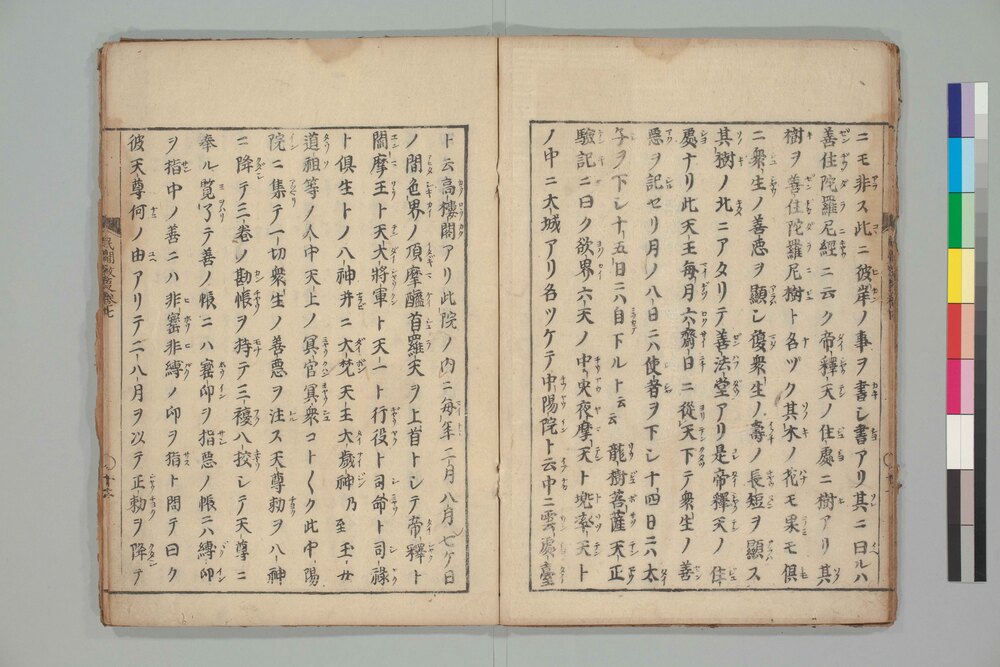 ニモ非ス此ニ彼岸ノ事ヲ書シ書アリ其ニ曰ルハ
善住陀羅尼經ニ云ク帝釋天ノ住處ニ樹アリ其
樹ヲ善住陀羅尼樹ト名ヅク其木ノ花モ果モ倶
ニ衆生ノ善悪ヲ顯シ復衆生ノ壽ノ長短ヲ顯ス
其樹ノ北ニアタリテ善法堂アリ是帝釋天ノ住
處ナリ此天王毎月六齋日ニ從天下テ衆生ノ善
悪ヲ記セリ月ノ八日ニハ使者ヲ下シ十四日ニハ太
子ヲ下シ十五日ニハ自下ルト云云 龍樹菩薩天正
驗記ニ曰ク欲界六天ノ中央夜摩天ト兜率天ト
ノ中ニ大城アリ名ツケテ中陽院ト云中ニ雲處臺
ト云高樓閣アリ此院ノ内ニ毎年二月八月七ケ日
ノ間色界ノ頂摩醯首羅天ヲ上首トシテ帝釋ト
閻摩王ト天大將軍ト天一ト行役ト司命ト司祿
ト倶生トノ八神并ニ大梵天王大歳神乃至玉女
道祖等ノ人中天上ノ冥官冥衆コトくク此中陽
院ニ集テ一切衆生ノ善悪ヲ注ス天尊勅ヲ八神
ニ降テ三巻ノ勘帳ヲ持テ三複八挍シテ天尊ニ
奉ル覽了テ善ノ帳ニハ密印ヲ指悪ノ帳ニハ縛印
ヲ指中ノ善ニハ非密非縛ノ印ヲ指ト問テ曰ク
彼天尊何ノ由アリテ二八月ヲ以テ正勅ヲ降テ